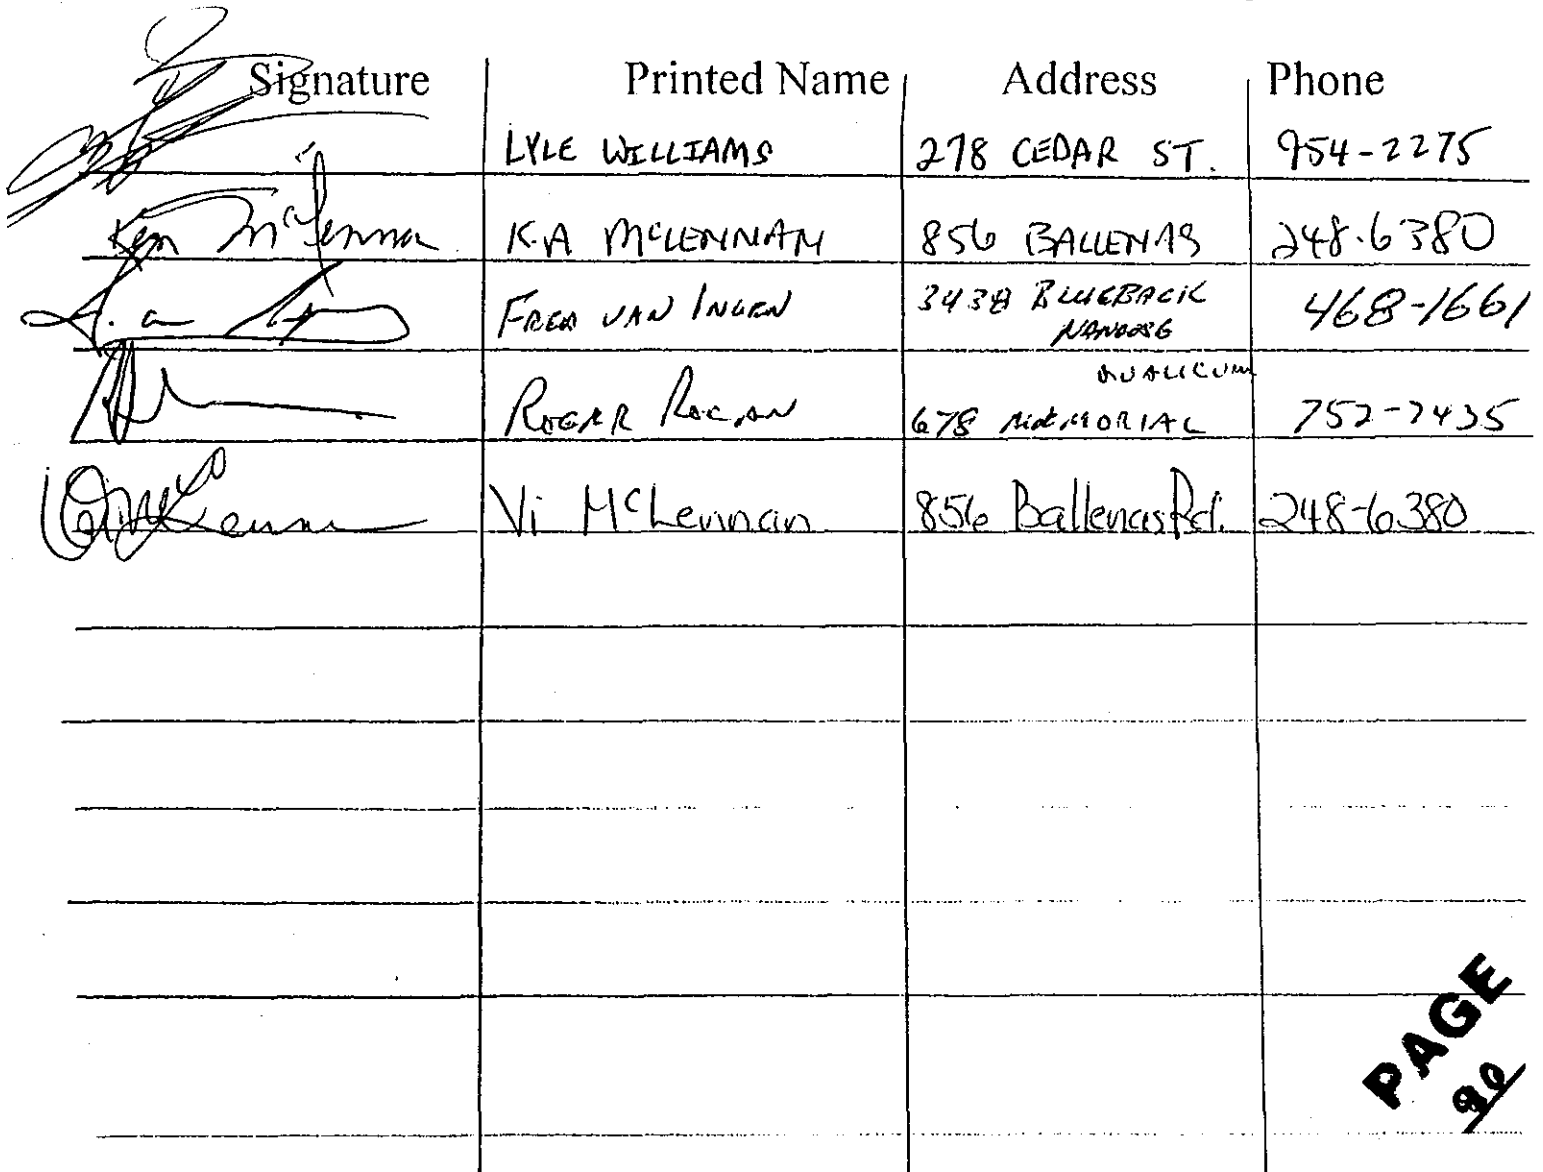 Signature Printed Name Address Phone
LYLE WILLIAMS 278 CEDAR ST. 954-2275
Ken McLennan K.A MCLENNAN 856 BALLENAS 248.6380
FRED VAN INGEN 3438 BLUEBACK 468-1661
NANOOSE
QUALICUM
ROGER 678 MEMORIAL 752-2435
Vi McLennan 856 Ballenas Rd. 248-6380
PAGE
90